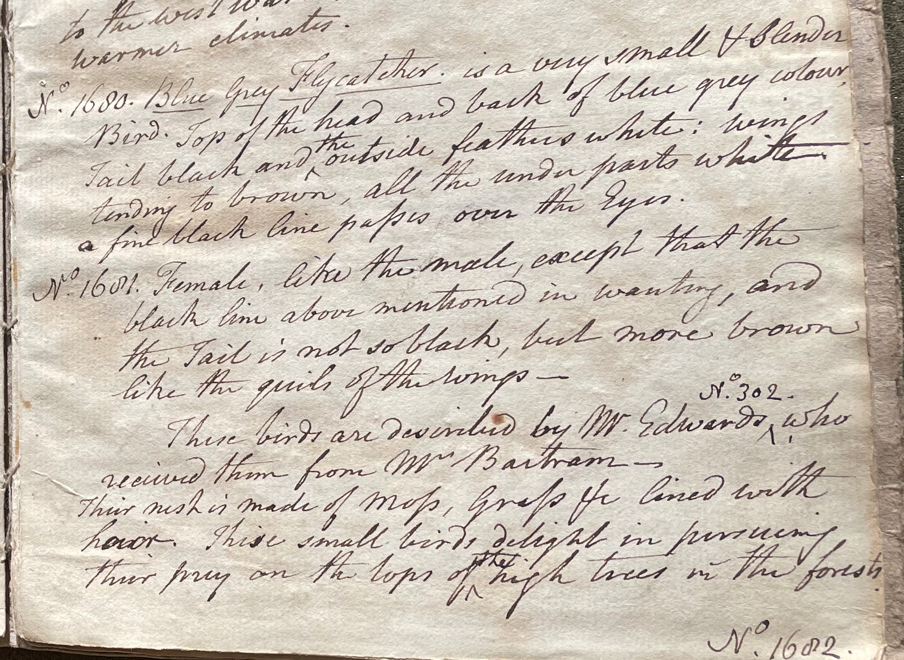 to the west war
warmer climates.
No. 1680. Blue Grey Flycatcher. is a very small & Slender
Bird. Top of the head and back of blue grey colour,
Tail black and the outside feathers white: wings
tending to brown, all the under parts white
a fine black line passes over the Eyes.
No. 1681. Female, like the male, except that the
black line above mentioned in wanting, and
the Tail is not so black, but more brown
like the quils of the wings —
No. 302.
These birds are described by Mr. Edwards, who
received them from Mr. Bartram —
Their nest is made of Moss, Grass &c lined with
hair. These small birds delight in pursuing
their prey on the tops of the high trees in the forests.
No. 1682.